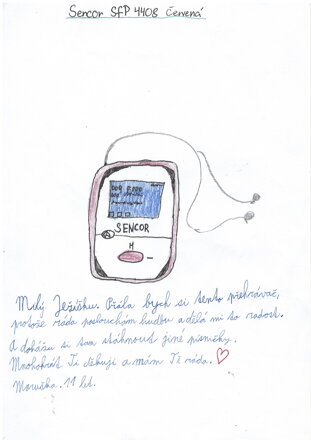 Sencor SFP 4408 Červená
SENCOR
M
-
Milý Ježíšku. Přála bych si tento přehrávač,
protože ráda poslouchám hudbu a dělá mi to radost.
A dokážu si tam stáhnout jiné písničky.
Mnohokrát Ti děkuji a mám Tě ráda.
Maruška. 11 let.